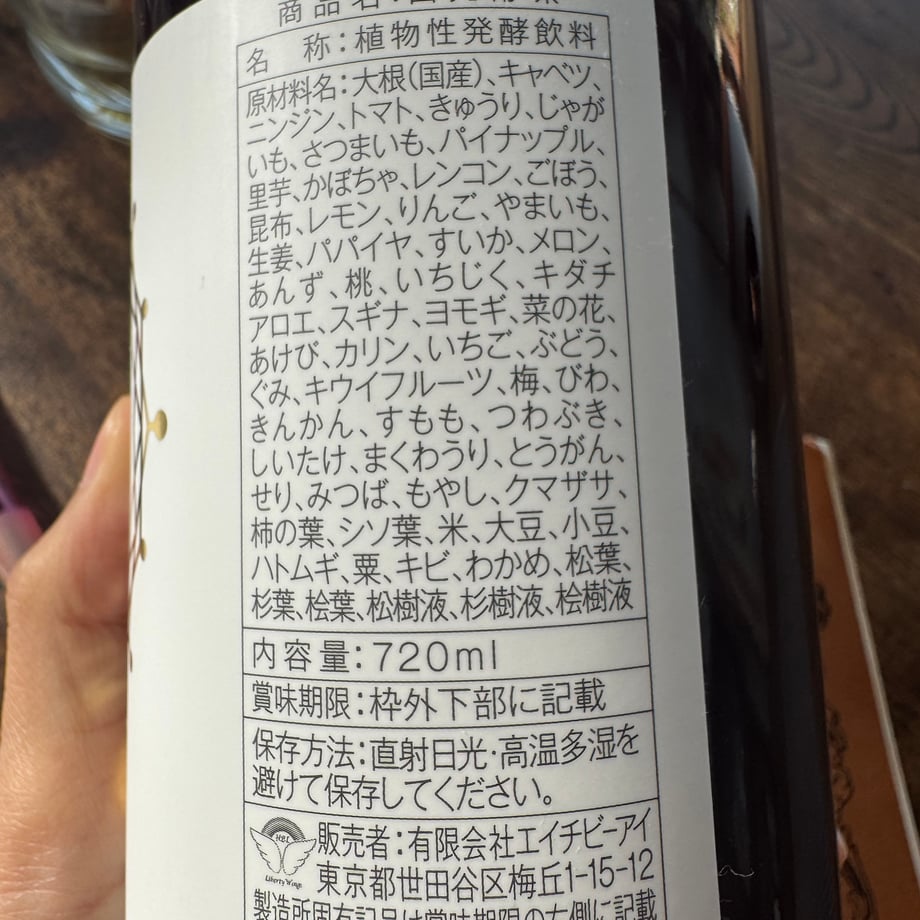 商品名:
名 称:植物性発酵飲料
原材料名:大根(国産)、キャベツ、
ニンジン、トマト、きゅうり、じゃが
いも、さつまいも、パイナップル、
里芋、かぼちゃ、レンコン、ごぼう、
昆布、レモン、りんご、やまいも、
生姜、パパイヤ、すいか、メロン、
あんず、桃、いちじく、キダチ
アロエ、スギナ、ヨモギ、菜の花、
あけび、カリン、いちご、ぶどう、
ぐみ、キウイフルーツ、梅、びわ、
きんかん、すもも、つわぶき、
しいたけ、まくわうり、とうがん、
せり、みつば、もやし、クマザサ、
柿の葉、シソ葉、米、大豆、小豆、
ハトムギ、粟、キビ、わかめ、松葉、
杉葉、桧葉、松樹液、杉樹液、桧樹液
内容量:720ml
賞味期限:枠外下部に記載
保存方法:直射日光・高温多湿を
避けて保存してください。
HBI
Liberty Wings
販売者:有限会社エイチビーアイ
東京都世田谷区梅丘1-15-12
製造所固有記号は賞味期限の右側に記載